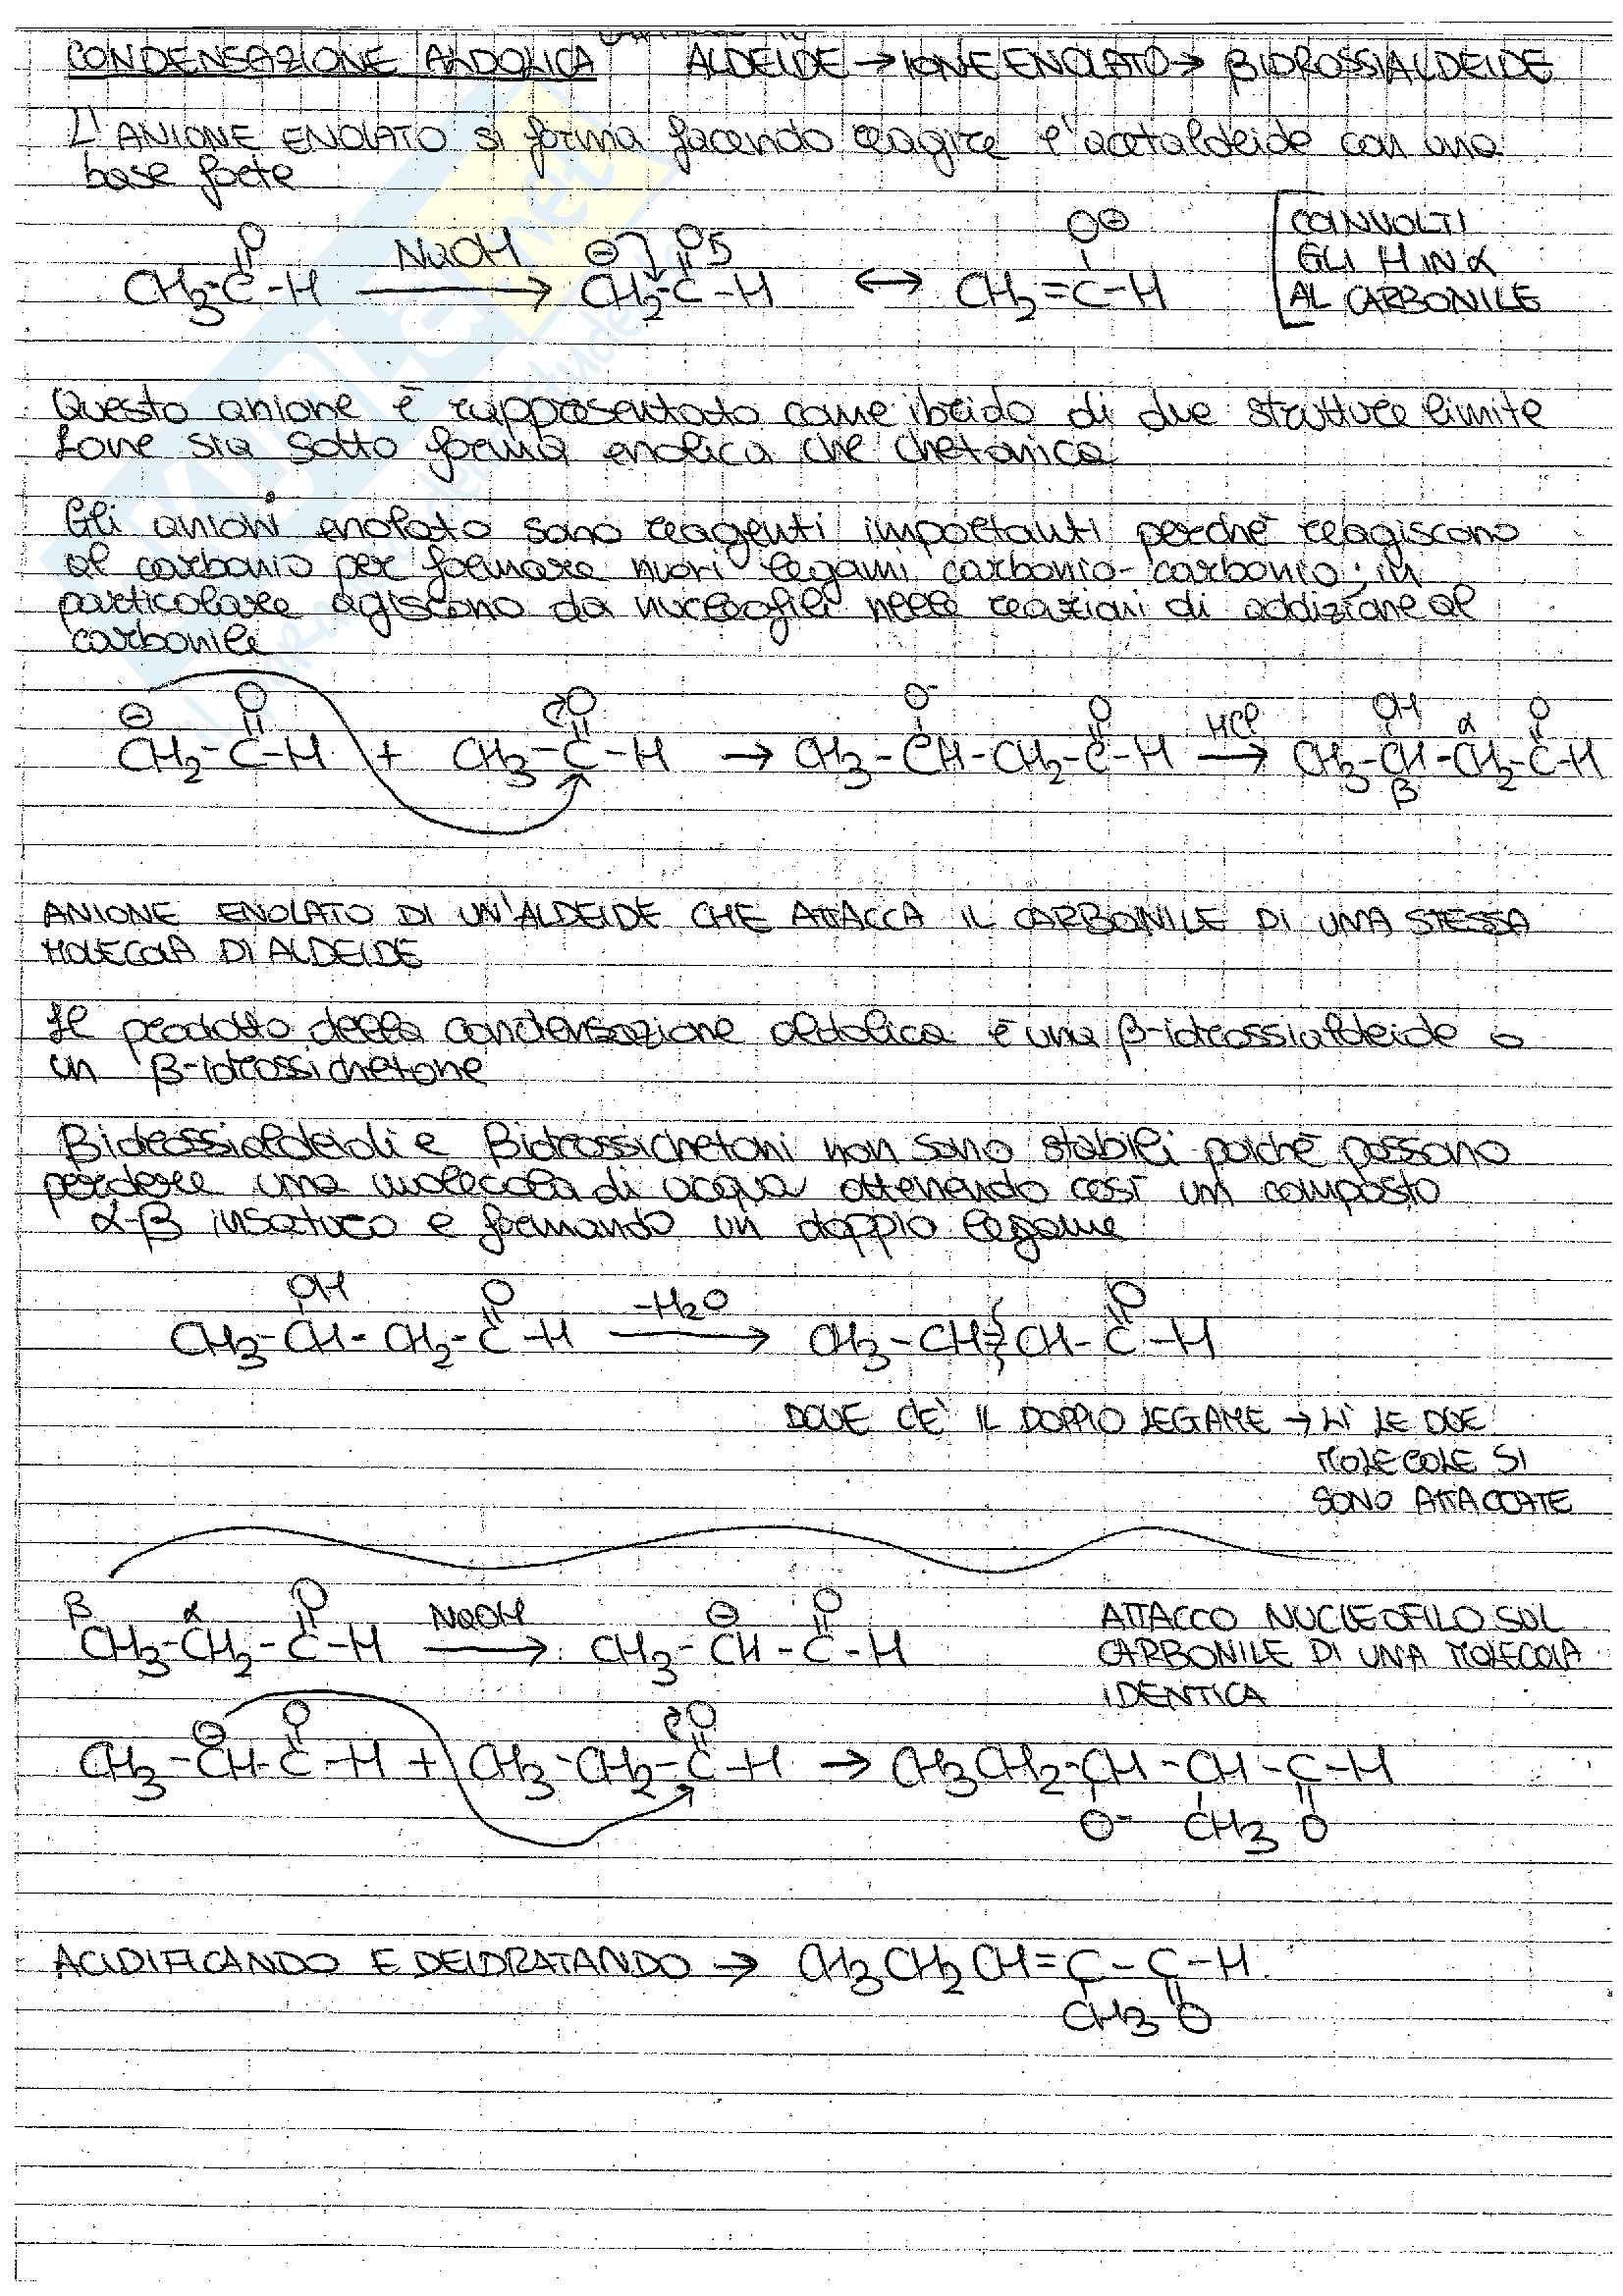 CONDENSAZIONE ALDOLICA ALDEIDE → IONE ENOLATO → βIDROSSIALDEIDE
L'ANIONE ENOLATO si forma facendo reagire l'acetaldeide con una
base forte
O O O⊖ [COINVOLTI
CH3-C-H NaOH → ⊖CH2-C-H ↔ CH2=C-H GLI H IN α
AL CARBONILE
Questo anione è rappresentato come ibrido di due strutture limite
sia sotto forma enolica che chetonica
Gli anioni enolato sono reagenti importanti perchè reagiscono
al carbonio per formare nuovi legami carbonio-carbonio; in
particolare agiscono da nucleofili nelle reazioni di addizione al
carbonile
⊖ O O O⁻ O OH α O
CH2-C-H + CH3-C-H → CH3-CH-CH2-C-H HCl → CH3-CH-CH2-C-H
β
ANIONE ENOLATO DI UN'ALDEIDE CHE ATTACCA IL CARBONILE DI UNA STESSA
MOLECOLA DI ALDEIDE
Il prodotto della condensazione aldolica è una β-idrossialdeide o
un β-idrossichetone
βidrossialdeidi e βidrossichetoni non sono stabili poichè possono
perdere una molecola di acqua ottenendo così un composto
α-β insaturo e formando un doppio legame
OH O O
CH3-CH-CH2-C-H -H2O → CH3-CH=CH-C-H
DOVE C'È IL DOPPIO LEGAME → LÌ LE DUE
MOLECOLE SI
SONO ATTACCATE
β α O ⊖ O ATTACCO NUCLEOFILO SUL
CH3-CH2-C-H NaOH → CH3-CH-C-H CARBONILE DI UNA MOLECOLA
IDENTICA
⊖ O O
CH3-CH-C-H + CH3-CH2-C-H → CH3CH2-CH-CH-C-H
O⁻ CH3 O
ACIDIFICANDO E DEIDRATANDO → CH3CH2CH=C-C-H
CH3 O